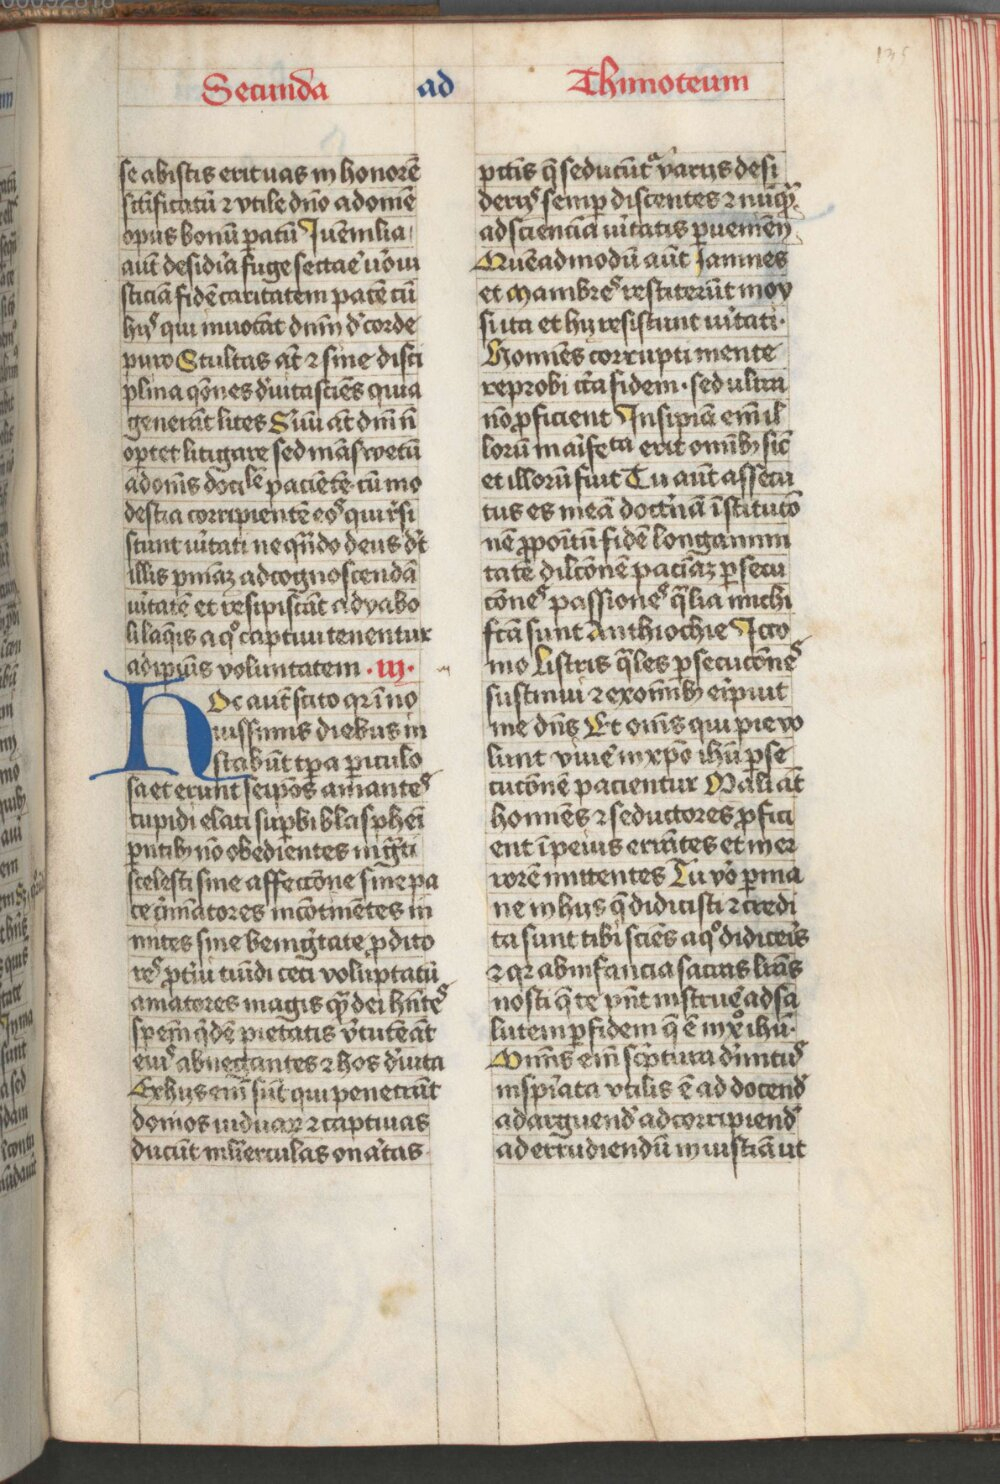 135
Secunda ad Thimoteum
se ab istis erit vas in honorē
sctificatū ⁊ vtile dn̄o ad om̄e
opus bonū patū Iuuenilia
aut̄ desidia fuge sectae̓ uͦo iu
sticiā fidē caritatem pacē cū
hijs qui inuocāt dn̄m d̓ corde
puro Stultas at̄ ⁊ sine disci
plina qōnes d̓uita sciēs quia
generāt lites S̓uū at̄ dm̄ n̄
optet litigare sed māswetū
ad om̄s docilē paciētē cū mo
destia corripientē eos qui r̓si
stunt u̓itati ne qn̄do deus d̓t
illis pniāʒ ad cognoscendā
u̓itatē et resipiscāt a dyabo
li laq̓is a qͦ captiui tenentur
ad ip̄ius voluntatem · iij ·
Hoc aut̄ scito qr ī no
uissimis diebus in
stabūt tp̄a piculo
sa et erunt seip̄os amantes
cupidi elati supbi blasphei
pntibȝ nō obedientes ingͣti
scelesti sine affectōne sine pa
ce c̓minatores incōtinētes in
mites sine benigͥtate pdito
res ptiui tumidi ceci voluptatū
amatores magis qͣ dei hn̄tes
spem̄ qͥdē pietatis v̓tutē āt
eius abnegantes ⁊ hos d̓uita
Ex hijs em̄ sūt qui penetrāt
domos viduaꝝ ⁊ captiuas
ducūt mlierculas on̓atas
pctis q̄ seducūtͬ varijs desi
derijs semp discentes ⁊ nūqͣ
ad scienciā u̓itatis puenien̄
Quēadmodū aut̄ Iamnes
et Mambres restiterūt moy
si ita et hij resistunt u̓itati·
Homīes corrupti mente
reprobi c̓ca fidem · sed ultra
nō pficient Insipiā em̄ il
lorū maīfeͨta erit om̄ibȝ sic̄
et illorū fuit Tu aut̄ assecu
tus es meā doct̓nā īstitucō
nē ppoitū fidē longanimi
tatē dilcōnē paciāʒ psecu
cōnes passiones q̄lia michi
fcā sunt Anthiochie Ico
nio Listris q̄les psecucōnes
sustinui ⁊ ex om̄ibȝ eipuit
me dn̄s Et om̄s qui pie vo
lunt viue̓ in xp̄o ih̄u pse
cucōnē pacientur Mali āt
homīes ⁊ seductores pfici
ent ī peius errātes et in er
rorē mittentes Tu vͦo pma
ne in hijs q̄ didicisti ⁊ credi
ta sunt tibi sciēs a qͦ didiceris
⁊ qr ab infancia sacras lrās
nosti q̄ te pn̄t instrue̓ ad sa
lutem p fidem q̄ ē in xͦ ih̄u·
Omnis em̄ sc̓ptura diuinitus
inspirata vtilis ē ad docend̓
ad arguend̓ ad corripiend̓
ad errudiendū in iusticiā ut